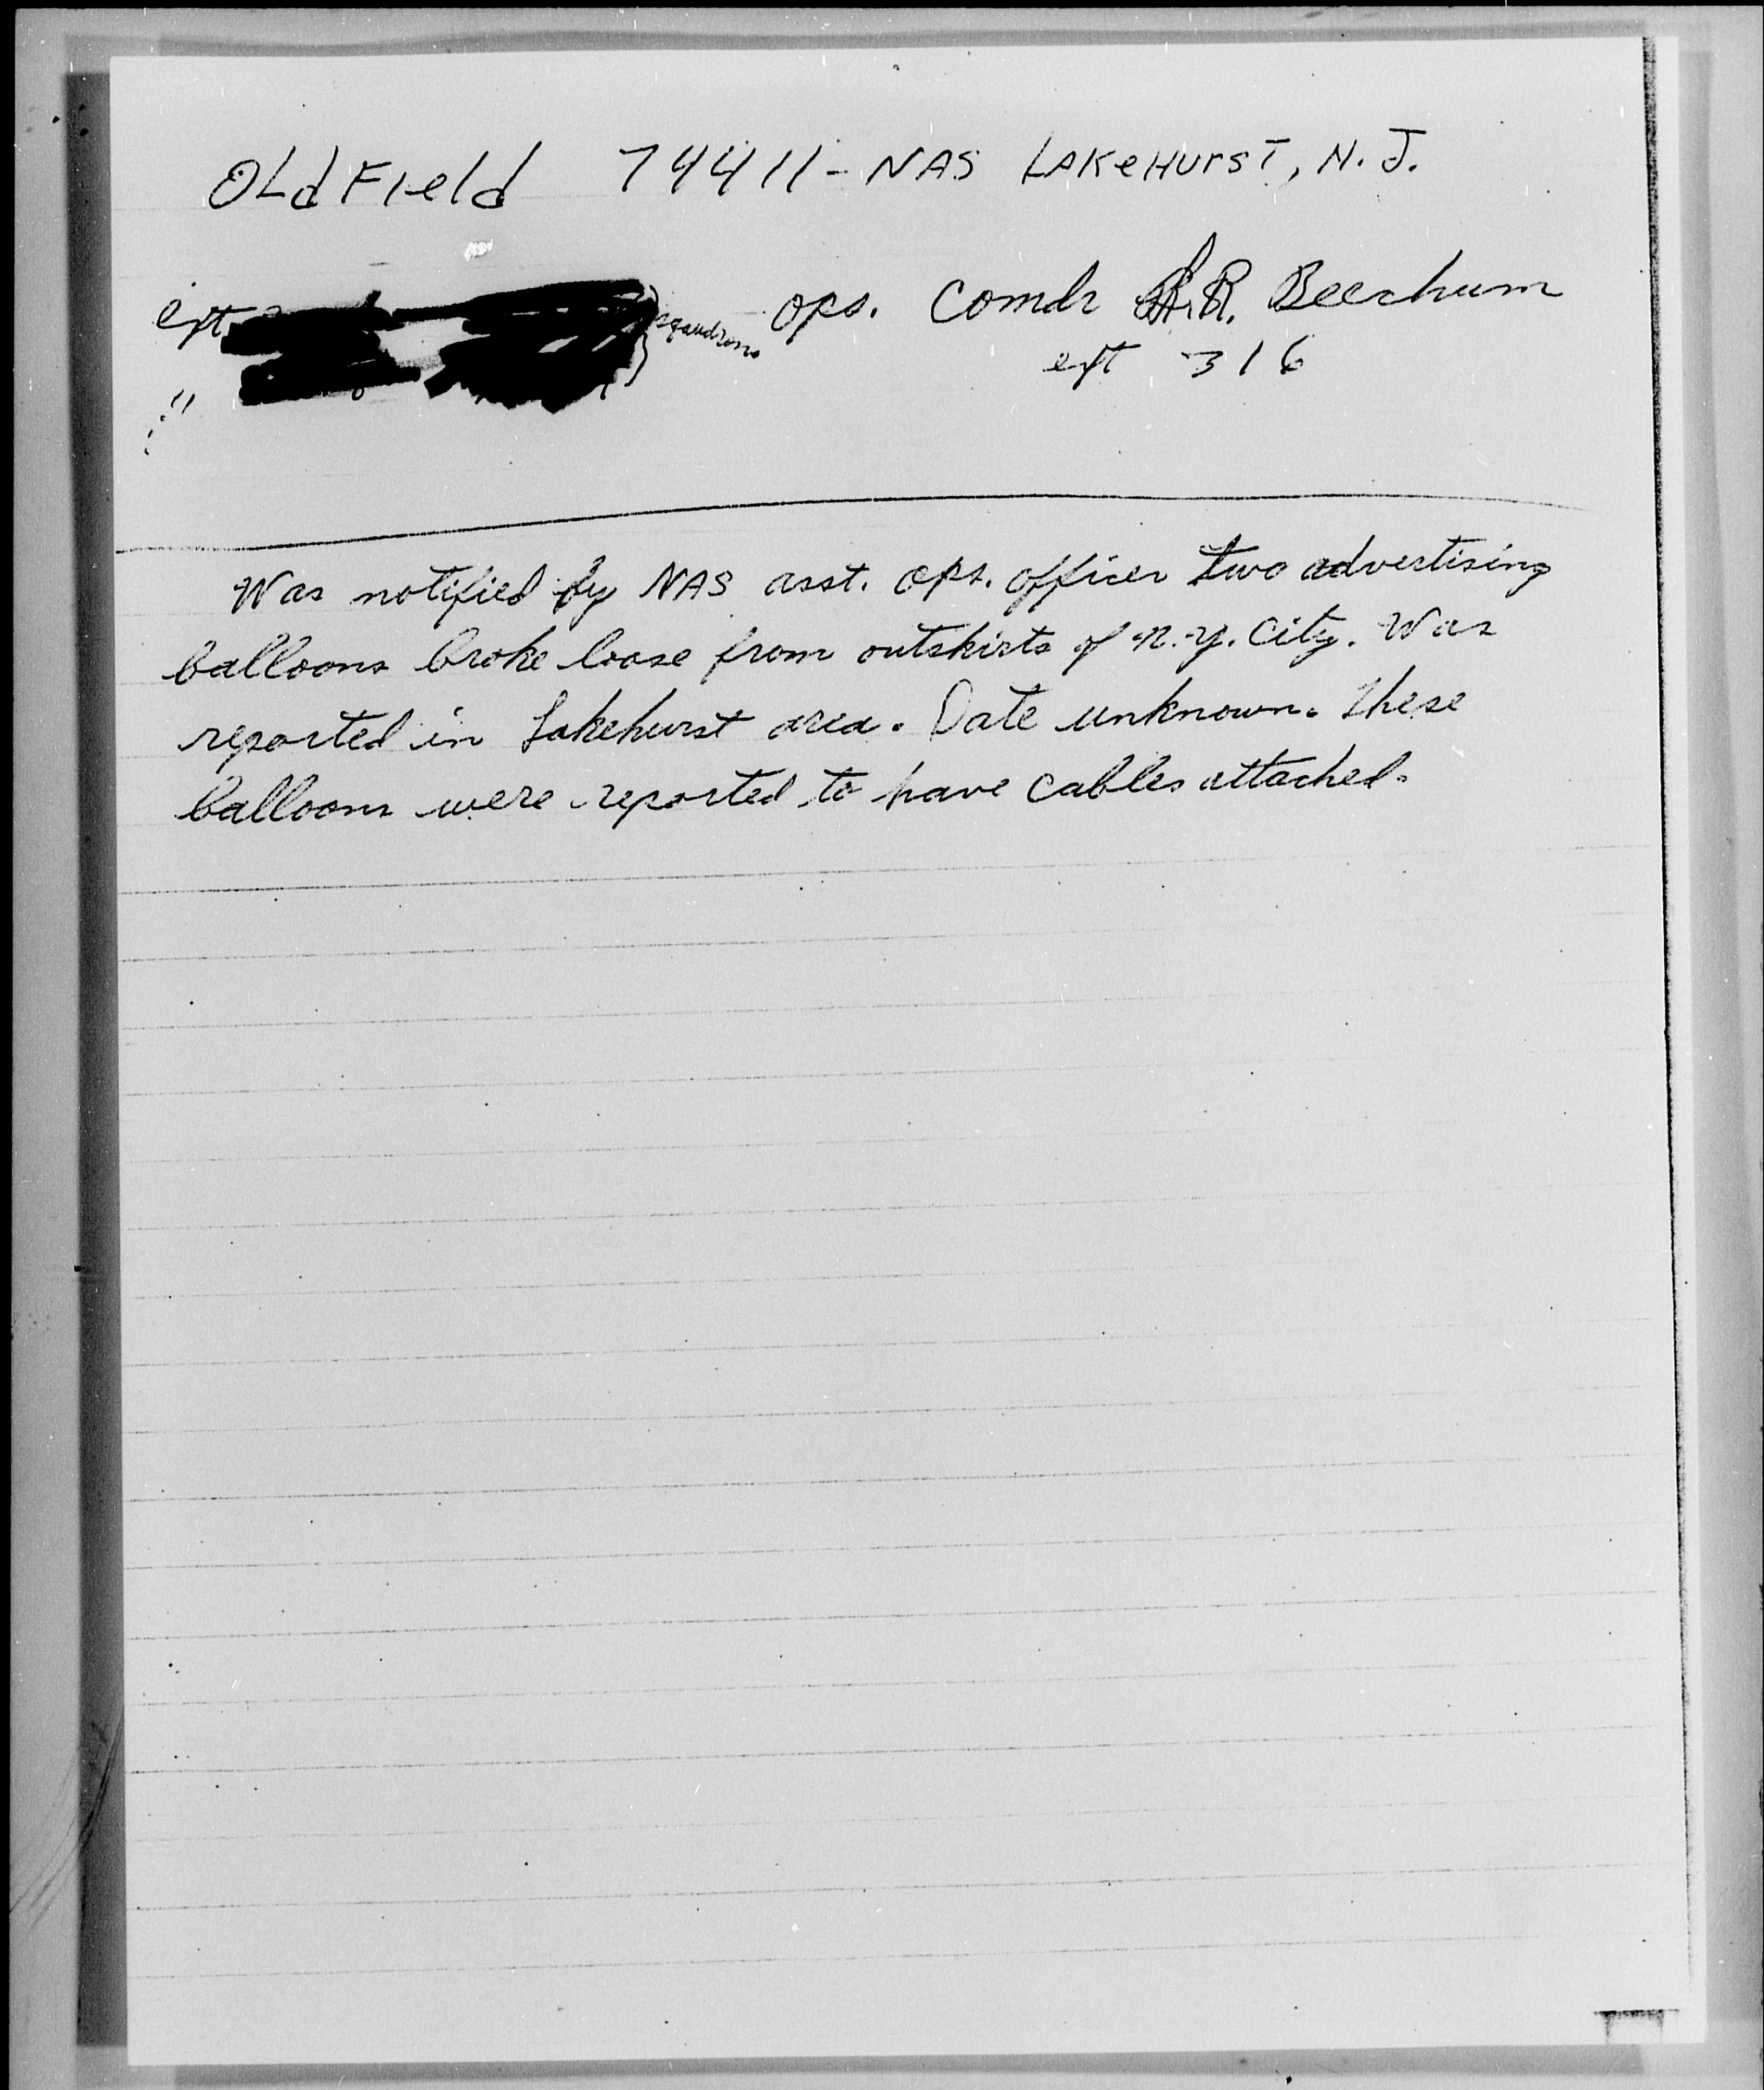 OLdFIeld 74411 - NAS LAKeHUrsT, N.J.
ext squadrons ops. Comdr R. Beechum
" ext 316
Was notified by NAS asst. ops. officer two advertising
balloons broke loose from outskirts of N.Y. City. Was
reported in Lakehurst area. Date unknown. These
balloons were reported to have cables attached.